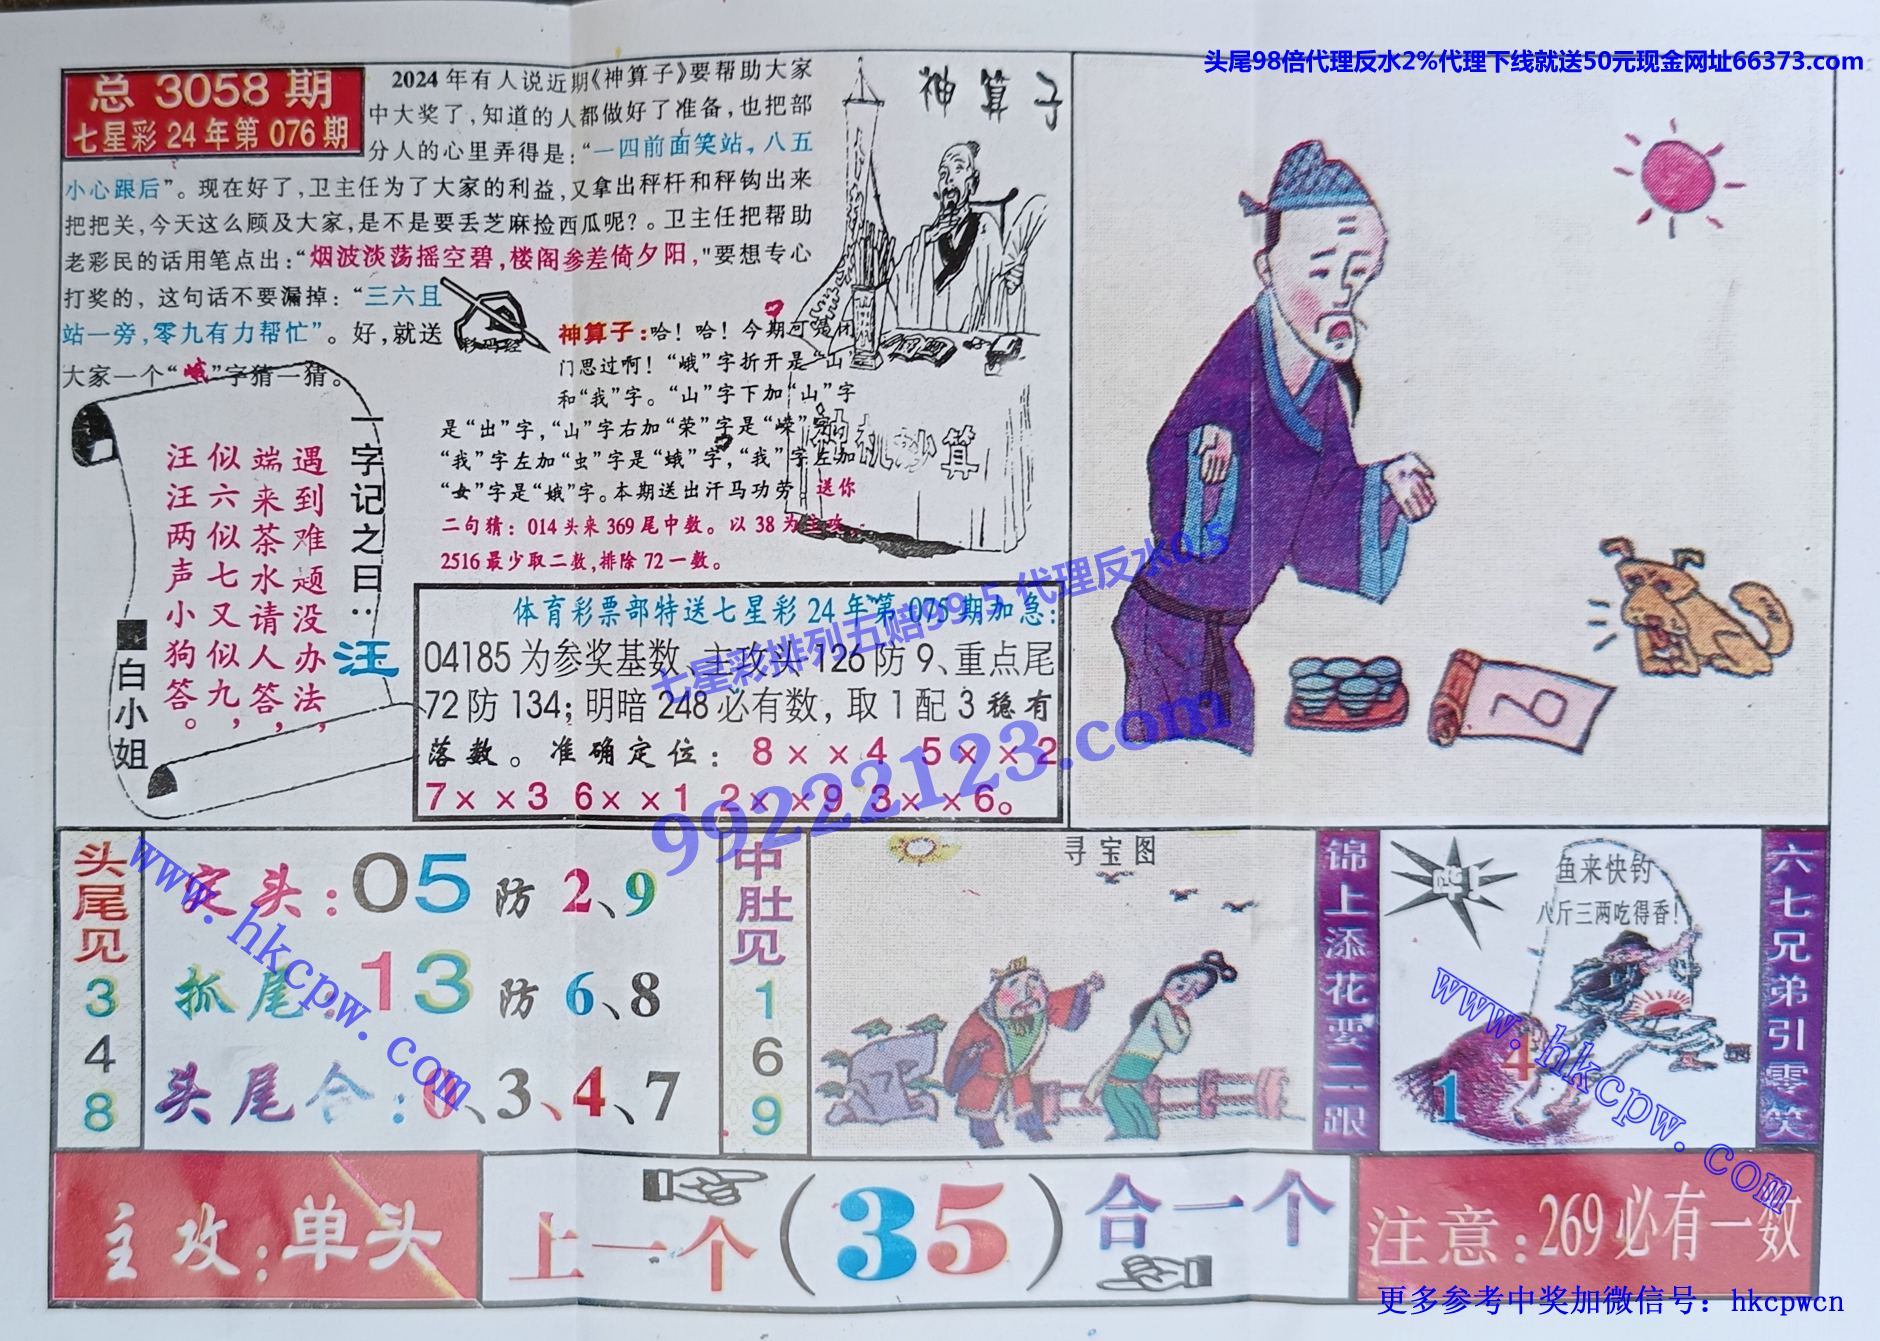 头尾98倍代理反水2%代理下线就送50元现金网址66373.com
总 3058 期
七星彩 24 年第 076 期
2024 年有人说近期《神算子》要帮助大家
中大奖了，知道的人都做好了准备，也把部
分人的心里弄得是：“一四前面笑站，八五
小心跟后”。现在好了，卫主任为了大家的利益，又拿出秤杆和秤钩出来
把把关，今天这么顾及大家，是不是要丢芝麻捡西瓜呢？。卫主任把帮助
老彩民的话用笔点出：“烟波淡荡摇空碧，楼阁参差倚夕阳，"要想专心
打奖的，这句话不要漏掉：“三六且
站一旁，零九有力帮忙”。好，就送
大家一个“峨”字猜一猜。
神算子
彩码经
神算子：哈！哈！今期可是闭
门思过啊！“峨”字折开是“山”
和“我”字。“山”字下加“山”字
是“出”字，“山”字右加“荣”字是“嵘”字
“我”字左加“虫”字是“蛾”字，“我”字左加
“女”字是“娥”字。本期送出汗马功劳 送你
二句猜：014 头来 369 尾中数。以 38 为主攻，
2516 最少取二数，排除 72 一数。
机妙算
一字记之曰：汪
遇到难题没办法，
端来茶水请人答，
似六似七又似九，
汪汪两声小狗答。
白小姐
体育彩票部特送七星彩 24 年第 075 期加急：
04185 为参奖基数、主攻头 126 防 9、重点尾
72 防 134；明暗 248 必有数，取 1 配 3 稳有
落数。准确定位：8××4 5××2
7××3 6××1 2××9 3××6。
七星彩排列五赔99.5 代理反水0.5
99222123.com
头尾见
3
4
8
定头：05 防 2、9
抓尾：13 防 6、8
头尾合：0、3、4、7
中肚见
1
6
9
寻宝图
锦上添花要二跟
鱼来快钓
八斤三两吃得香！
1
4
六七兄弟引零笑
www.hkcpw.com
www.hkcpw.com
主攻：单头
上一个（35）合一个
注意：269 必有一数
更多参考中奖加微信号：hkcpwcn